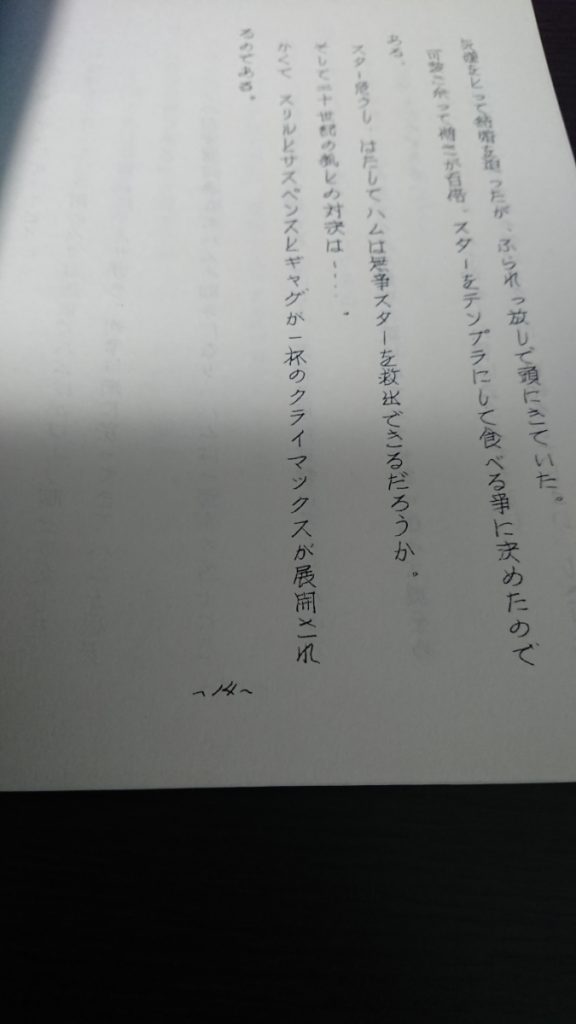 機嫌をとって結婚を迫ったが、ふられっ放しで頭にきていた。
可愛さ余って憎さが百倍、スターをテンプラにして食べる事に決めたので
ある。
スター危うし、はたしてハムは無事スターを救出できるだろうか。
そして二十世紀の狐との対決は……。
かくて スリルとサスペンスとギャグが一杯のクライマックスが展開され
るのである。
〜14〜